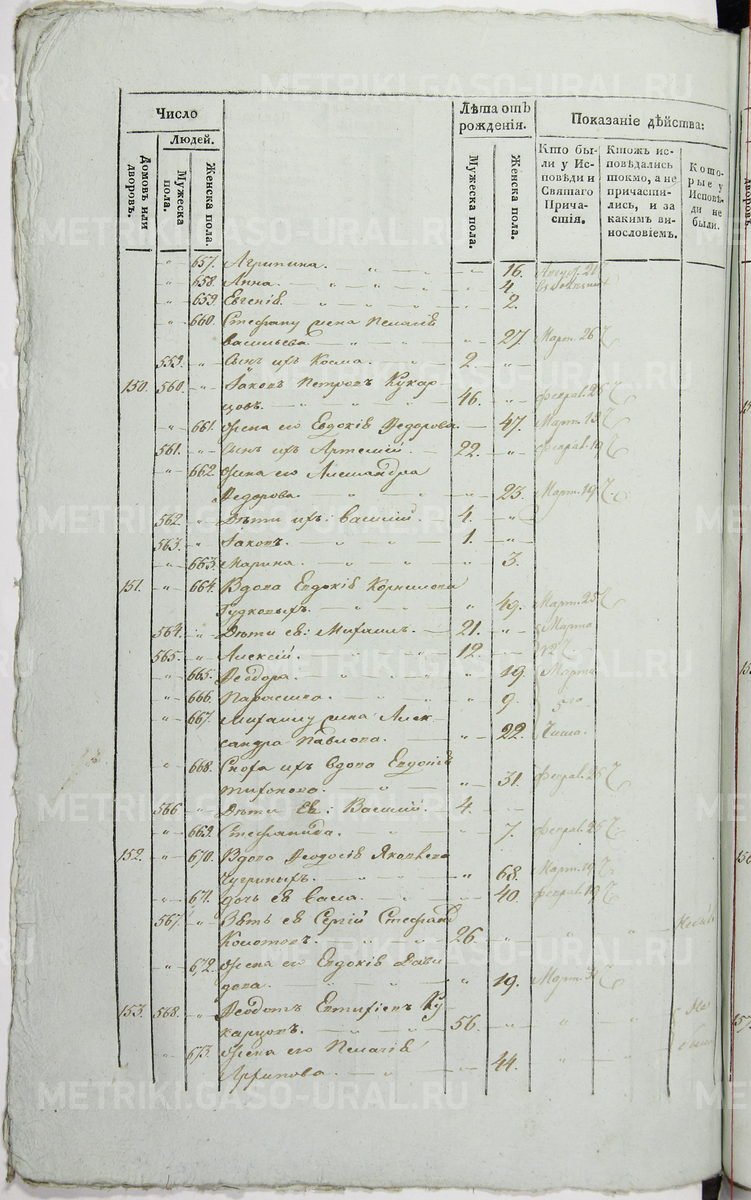 METRIKI.GASO-URAL.RU
Число
Людей.
Домовъ или дворовъ.
Мужеска пола.
Женска пола.
Лѣта отъ рожденія.
Мужеска пола.
Женска пола.
Показаніе дѣйства:
Кто бы-
ли у Ис-
повѣди и
Святаго
Прича-
стія.
Ктожъ ис-
повѣдались
токмо, а не
причасти-
лись, и за
какимъ ви-
нословіемъ.
Кото-
рые у
Исповѣ-
ди не
были.
657. Агрипина. 16.
658. Анна. 4.
659. Евгенія. 2.
660. Стефану жена Пелагія
Васильева. 27 Март. 26
559. Сынъ ихъ Косма. 2.
150. 560. Іаковъ Петровъ Кухар-
цовъ. 46. Феврал. 26
661. Жена его Евдокія Федорова. 47. Март.
561. Сынъ ихъ Артемій. 22. Феврал. 19
662 Жена его Александра
Федорова. 23. Март. 19
562. Дѣти ихъ: Василій 4.
563. Іаковъ. 1.
663. Марина. 3.
151. 664. Вдова Евдокія Корнилова
Гудковыхъ. 49. Март. 25
564. Дѣти ея: Михаилъ. 21. Марта
565. Алексій. 12.
665. Феодора. 19 Марта
666. Парасковія. 9. 5го
667. Михаилу жена Алек-
сандра Павлова. 22. Числа.
668. Сноха ихъ вдова Евдокія
Тихонова. 31. Феврал. 26
566 Дѣти ея: Василій. 4.
669. Стефанида. 7. Феврал. 26
152. 670. Вдова Феодосія Яковлева
Чугриныхъ. 68. Март. 19
671. Дочь ея Васса. 40. Феврал. 19
567. Зять ея Сергій Стефановъ
Колотовъ. 26.
672. Жена его Евдокія Дави-
дова. 19. Март.
153. 568. Феодотъ Евтифіевъ Ку-
харцовъ. 56. Не
673. Жена его Пелагія
Архипова. 44.